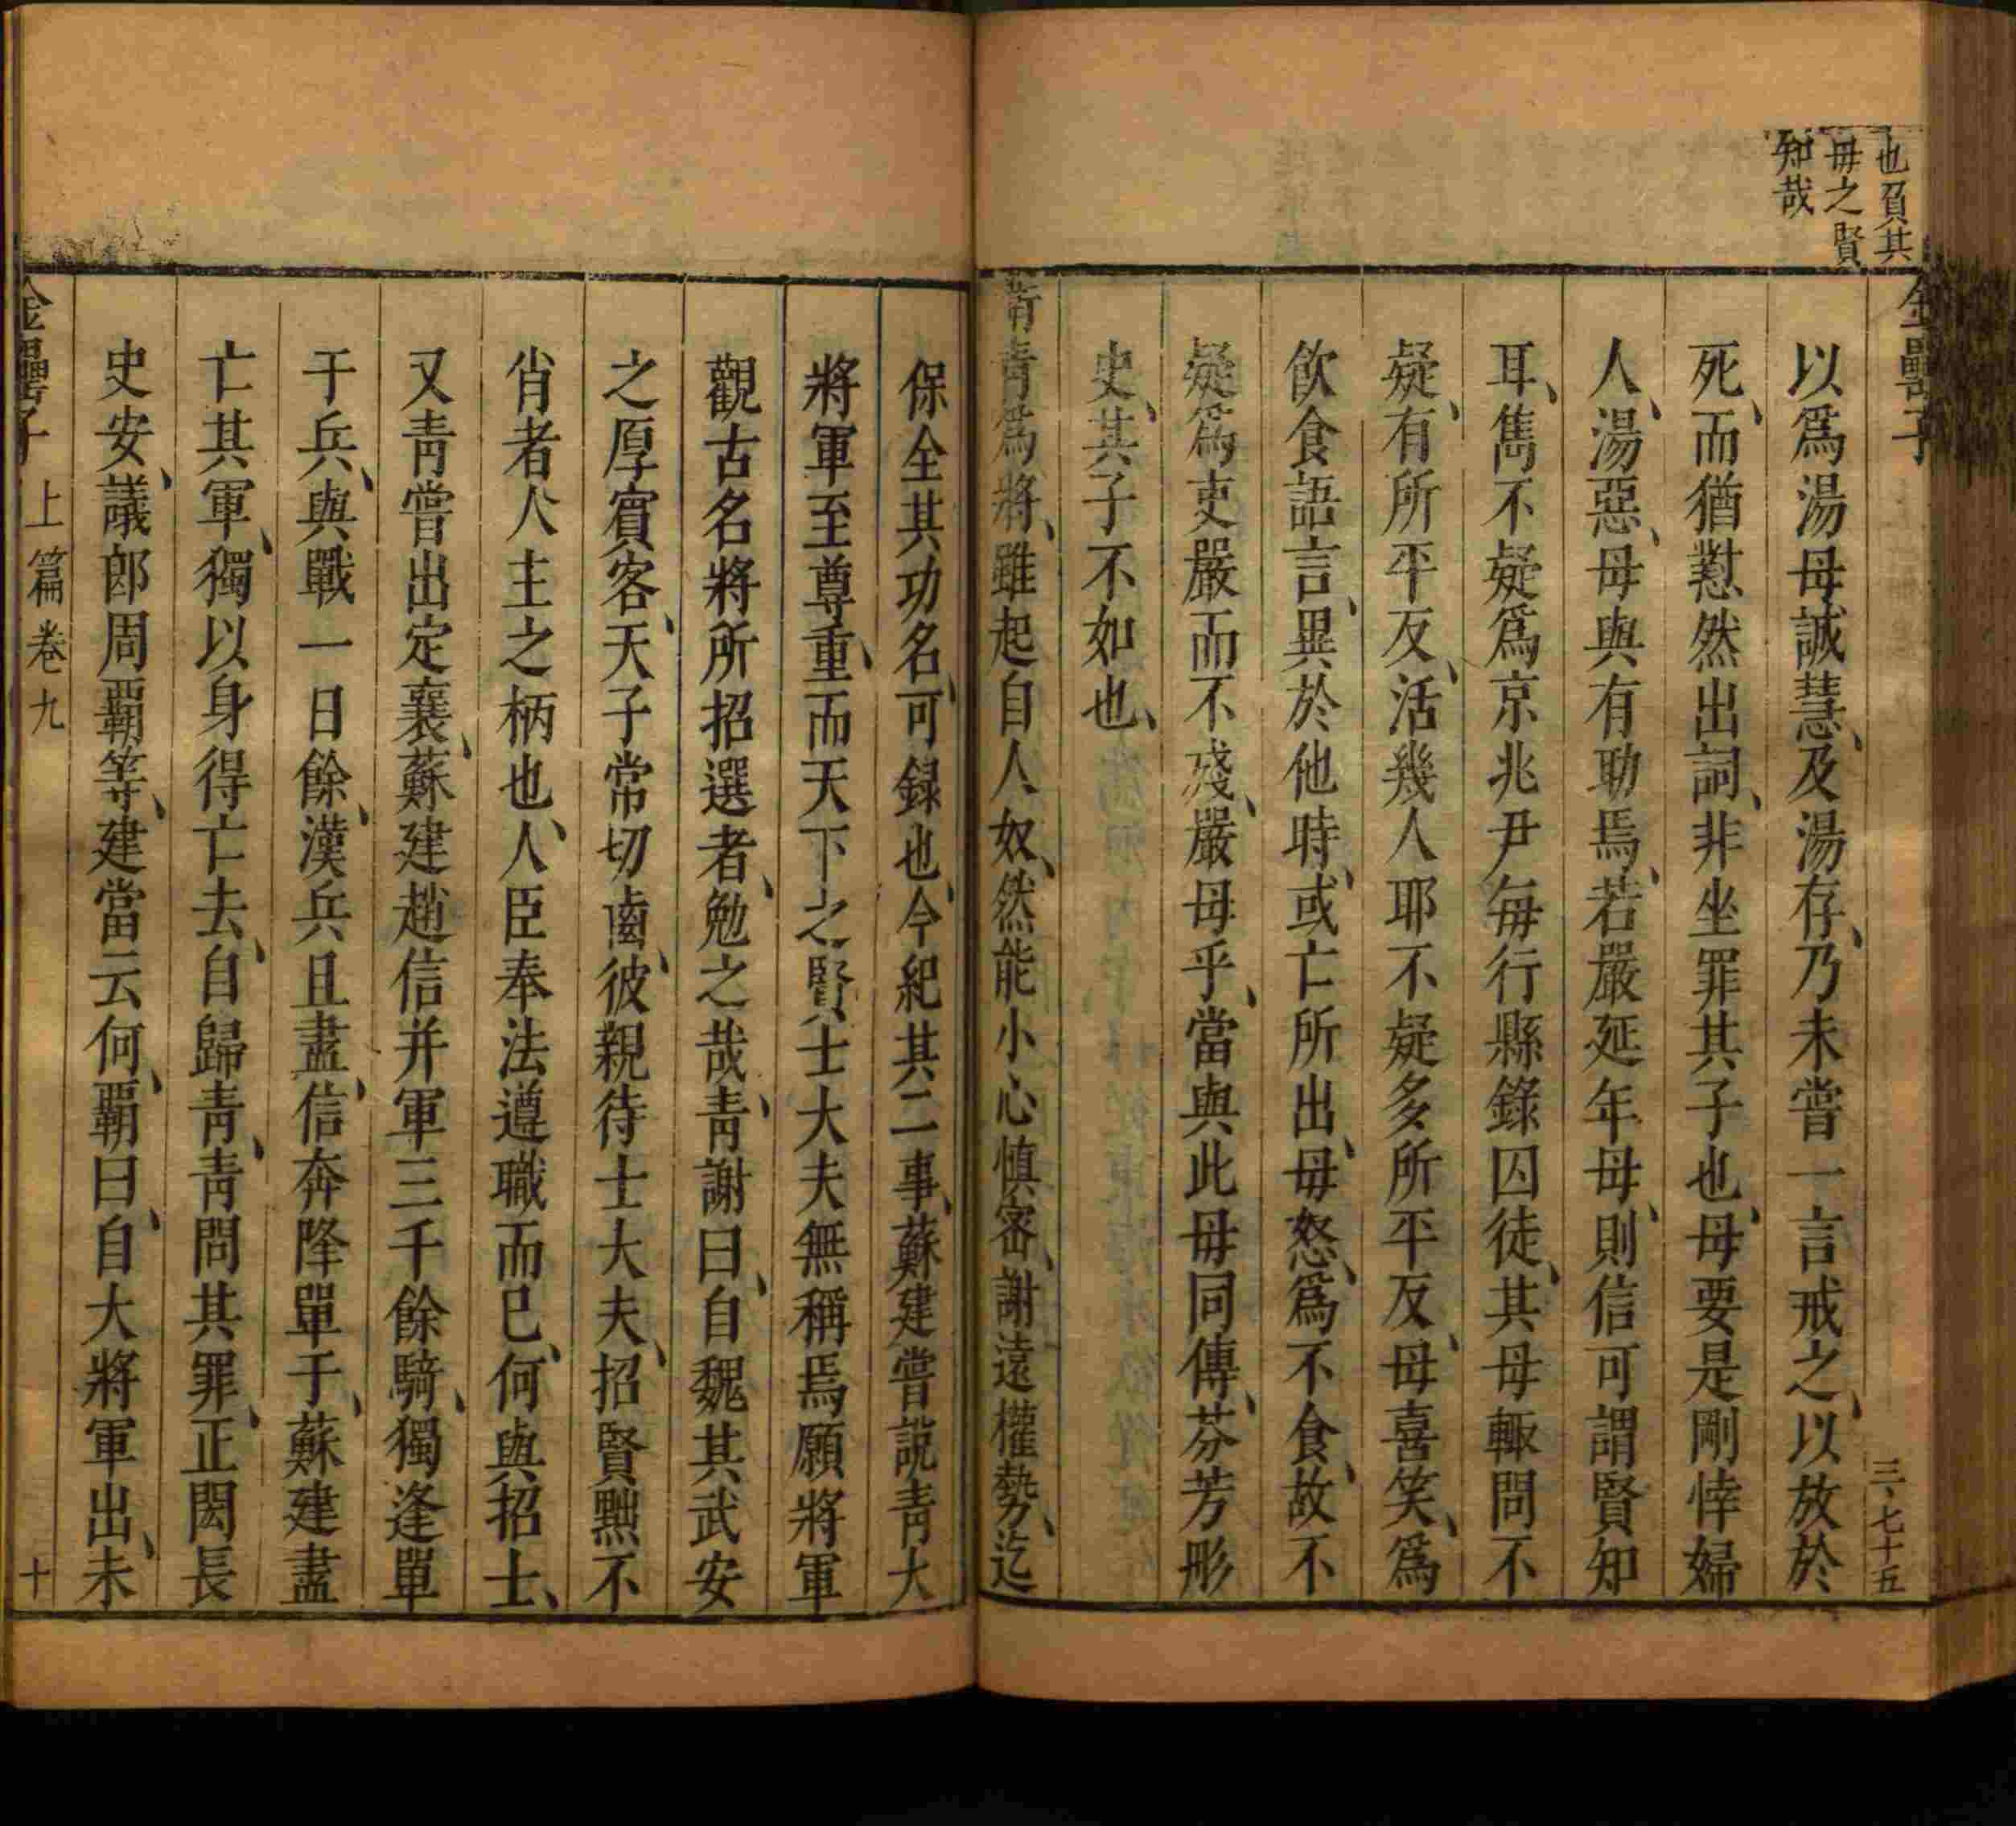 也貟其
母之賢
知哉
金罍子
三、七十五
以爲湯母誠慧、及湯存、乃未嘗一言戒之、以放於
死、而猶懟然出詞、非坐罪其子也、母要是剛悻婦
人、湯惡、母與有助焉、若嚴延年母、則信可謂賢知
耳、雋不疑爲京兆尹每行縣錄囚徒、其母輙問不
疑、有所平反、活幾人耶不疑多所平反、母喜笑、爲
飲食語言、異於他時、或亡所出、母怒、爲不食、故不
疑爲吏嚴而不殘、嚴母乎、當與此母同傳、芬芳彤
史、其子不如也、
衛青爲將、雖起自人奴、然能小心慎密、謝遠權勢、迄
保全其功名、可録也、今紀其二事、蘇建嘗說青大
將軍至尊重、而天下之賢士大夫無稱焉願將軍
觀古名將所招選者、勉之哉、青謝曰、自魏其武安
之厚賓客、天子常切齒、彼親待士大夫、招賢黜不
肖者人主之柄也、人臣奉法遵職而已、何與招士、
又青嘗出定襄、蘇建趙信并軍三千餘騎、獨逢單
于兵、與戰一日餘、漢兵且盡、信奔降單于、蘇建盡
亡其軍、獨以身得亡去、自歸青、青問其罪、正閎長
史安、議郎周覇等、建當云何、覇曰、自大將軍出、未
金罍子 上篇卷九 十